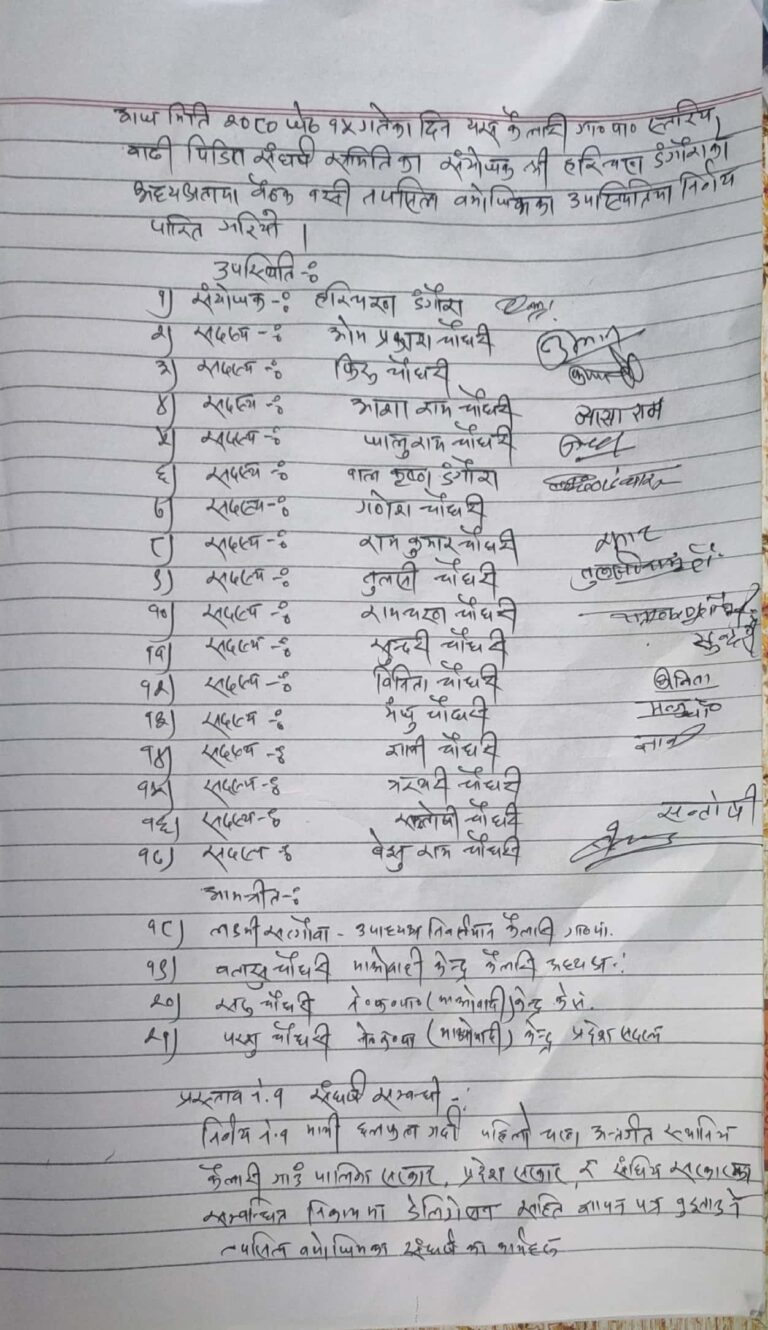 आज मिति २०८० जेठ १५ गतेका दिन यस कैलारी गा०पा० स्तरिय
बाढी पिडित संघर्ष समितिका संयोजक श्री हरिचरण डंगौराको
अध्यक्षतामा बैठक बसी तपसिल बमोजिमका उपस्थितिमा निर्णय
पारित गरियो ।
उपस्थिति -:
१) संयोजक -: हरिचरण डंगौरा
२) सदस्य -: ओम प्रकाश चौधरी
३) सदस्य -: किरु चौधरी
४) सदस्य -: आशा राम चौधरी आसा राम
५) सदस्य -: चौधरी
६) सदस्य -: बाल कृष्ण डंगौरा
७) सदस्य -: गणेश चौधरी
८) सदस्य -: राम कुमार चौधरी
९) सदस्य -: तुलसी चौधरी
१०) सदस्य -: रामचरण चौधरी
११) सदस्य -: सुन्दरी चौधरी सुन्दरी
१२) सदस्य -: विनिता चौधरी बिनिता
१३) सदस्य -: मंजु चौधरी
१४) सदस्य -: चौधरी
१५) सदस्य -: चौधरी
१६) सदस्य -: सन्तोषी चौधरी सन्तोषी
१७) सदस्य -: राम चौधरी
आमन्त्रीत -:
१८) लक्ष्मी सत्गौवा - उपाध्यक्ष निवर्तमान कैलारी गा०पा.
१९) चौधरी माओवादी केन्द्र कैलारी अध्यक्ष
२०) चौधरी ने०क०पा० (माओवादी) केन्द्र
२१) परशु चौधरी ने०क०पा (माओवादी) केन्द्र प्रदेश सदस्य
प्रस्ताव नं. १ संघर्ष सम्बन्धी -:
निर्णय नं. १ माथी छलफल गर्दा पहिलो चरण अन्तर्गत स्थानिय
कैलारी गाउँ पालिका सरकार, प्रदेश सरकार, र संघिय सरकारका
सम्बन्धित निकायमा डेलिगेसन सहित ज्ञापन पत्र बुझाउने
तपसिल बमोजिमका संघर्ष का कार्यहरु